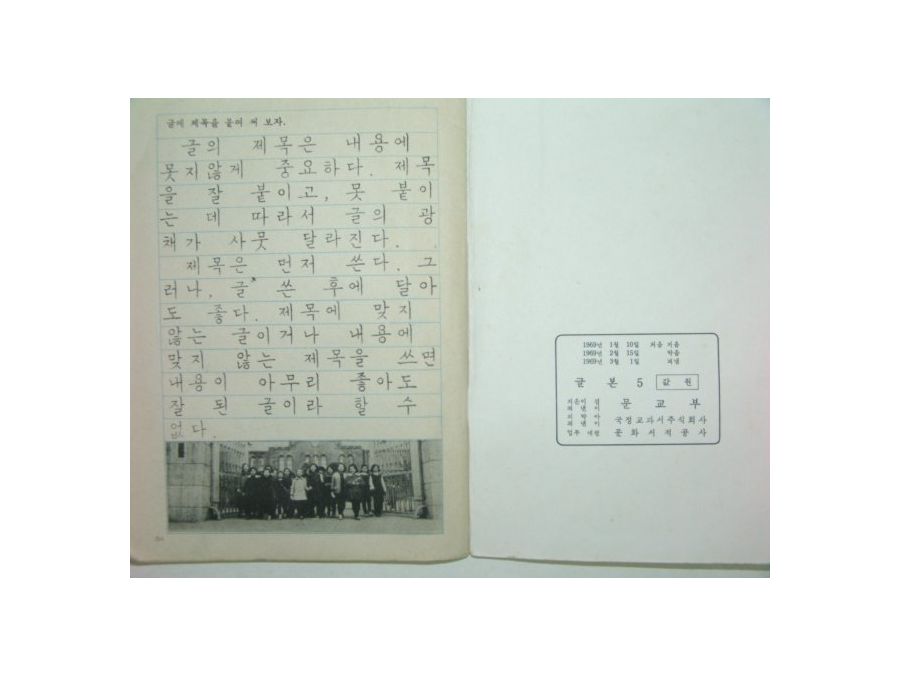 글에 제목을 붙여 써 보자.
글의 제목은 내용에
못지않게 중요하다. 제목
을 잘 붙이고, 못 붙이
는 데 따라서 글의 광
채가 사뭇 달라진다.
제목은 먼저 쓴다. 그
러나, 글 쓴 후에 달아
도 좋다. 제목에 맞지
않는 글이거나 내용에
맞지 않는 제목을 쓰면
내용이 아무리 좋아도
잘 된 글이라 할 수
없다.
1969년 1월 10일 처음 지음
1969년 2월 15일 박음
1969년 3월 1일 펴냄
글 본 5 값 원
지은이 겸 펴낸이 문교부
국정교과서주식회사
업무 대행 문화서적공사